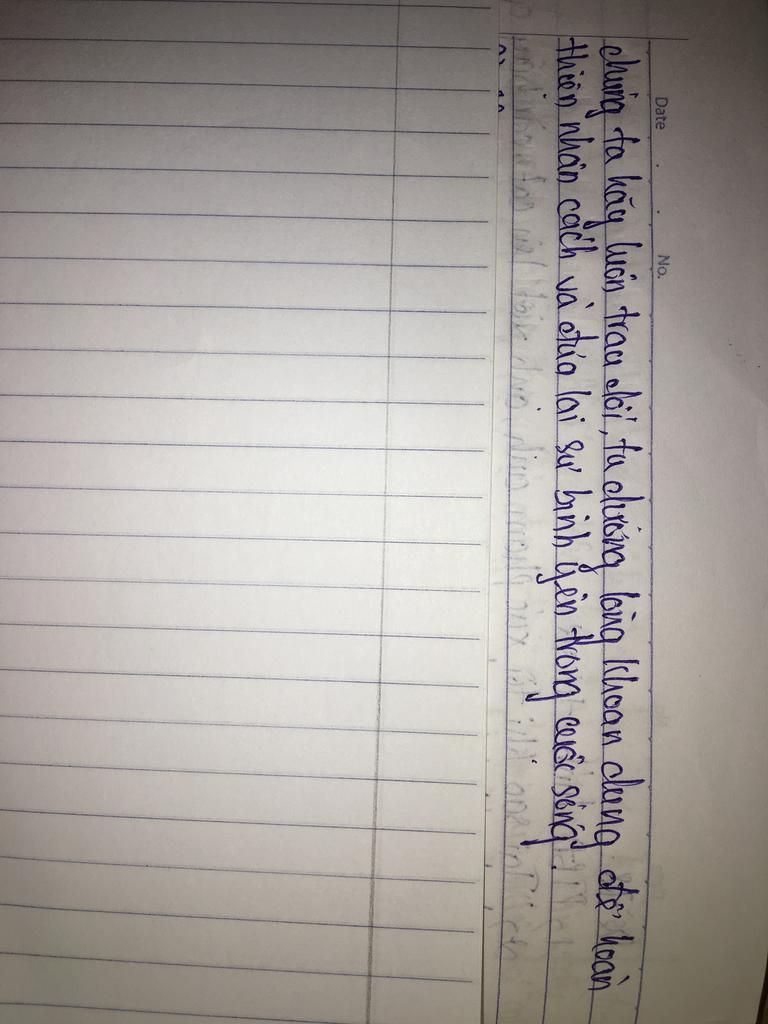 Date . . No.
chúng ta hãy luôn trau dồi, tu dưỡng lòng khoan dung để hoàn
thiện nhân cách và đưa lại sự bình yên trong cuộc sống.